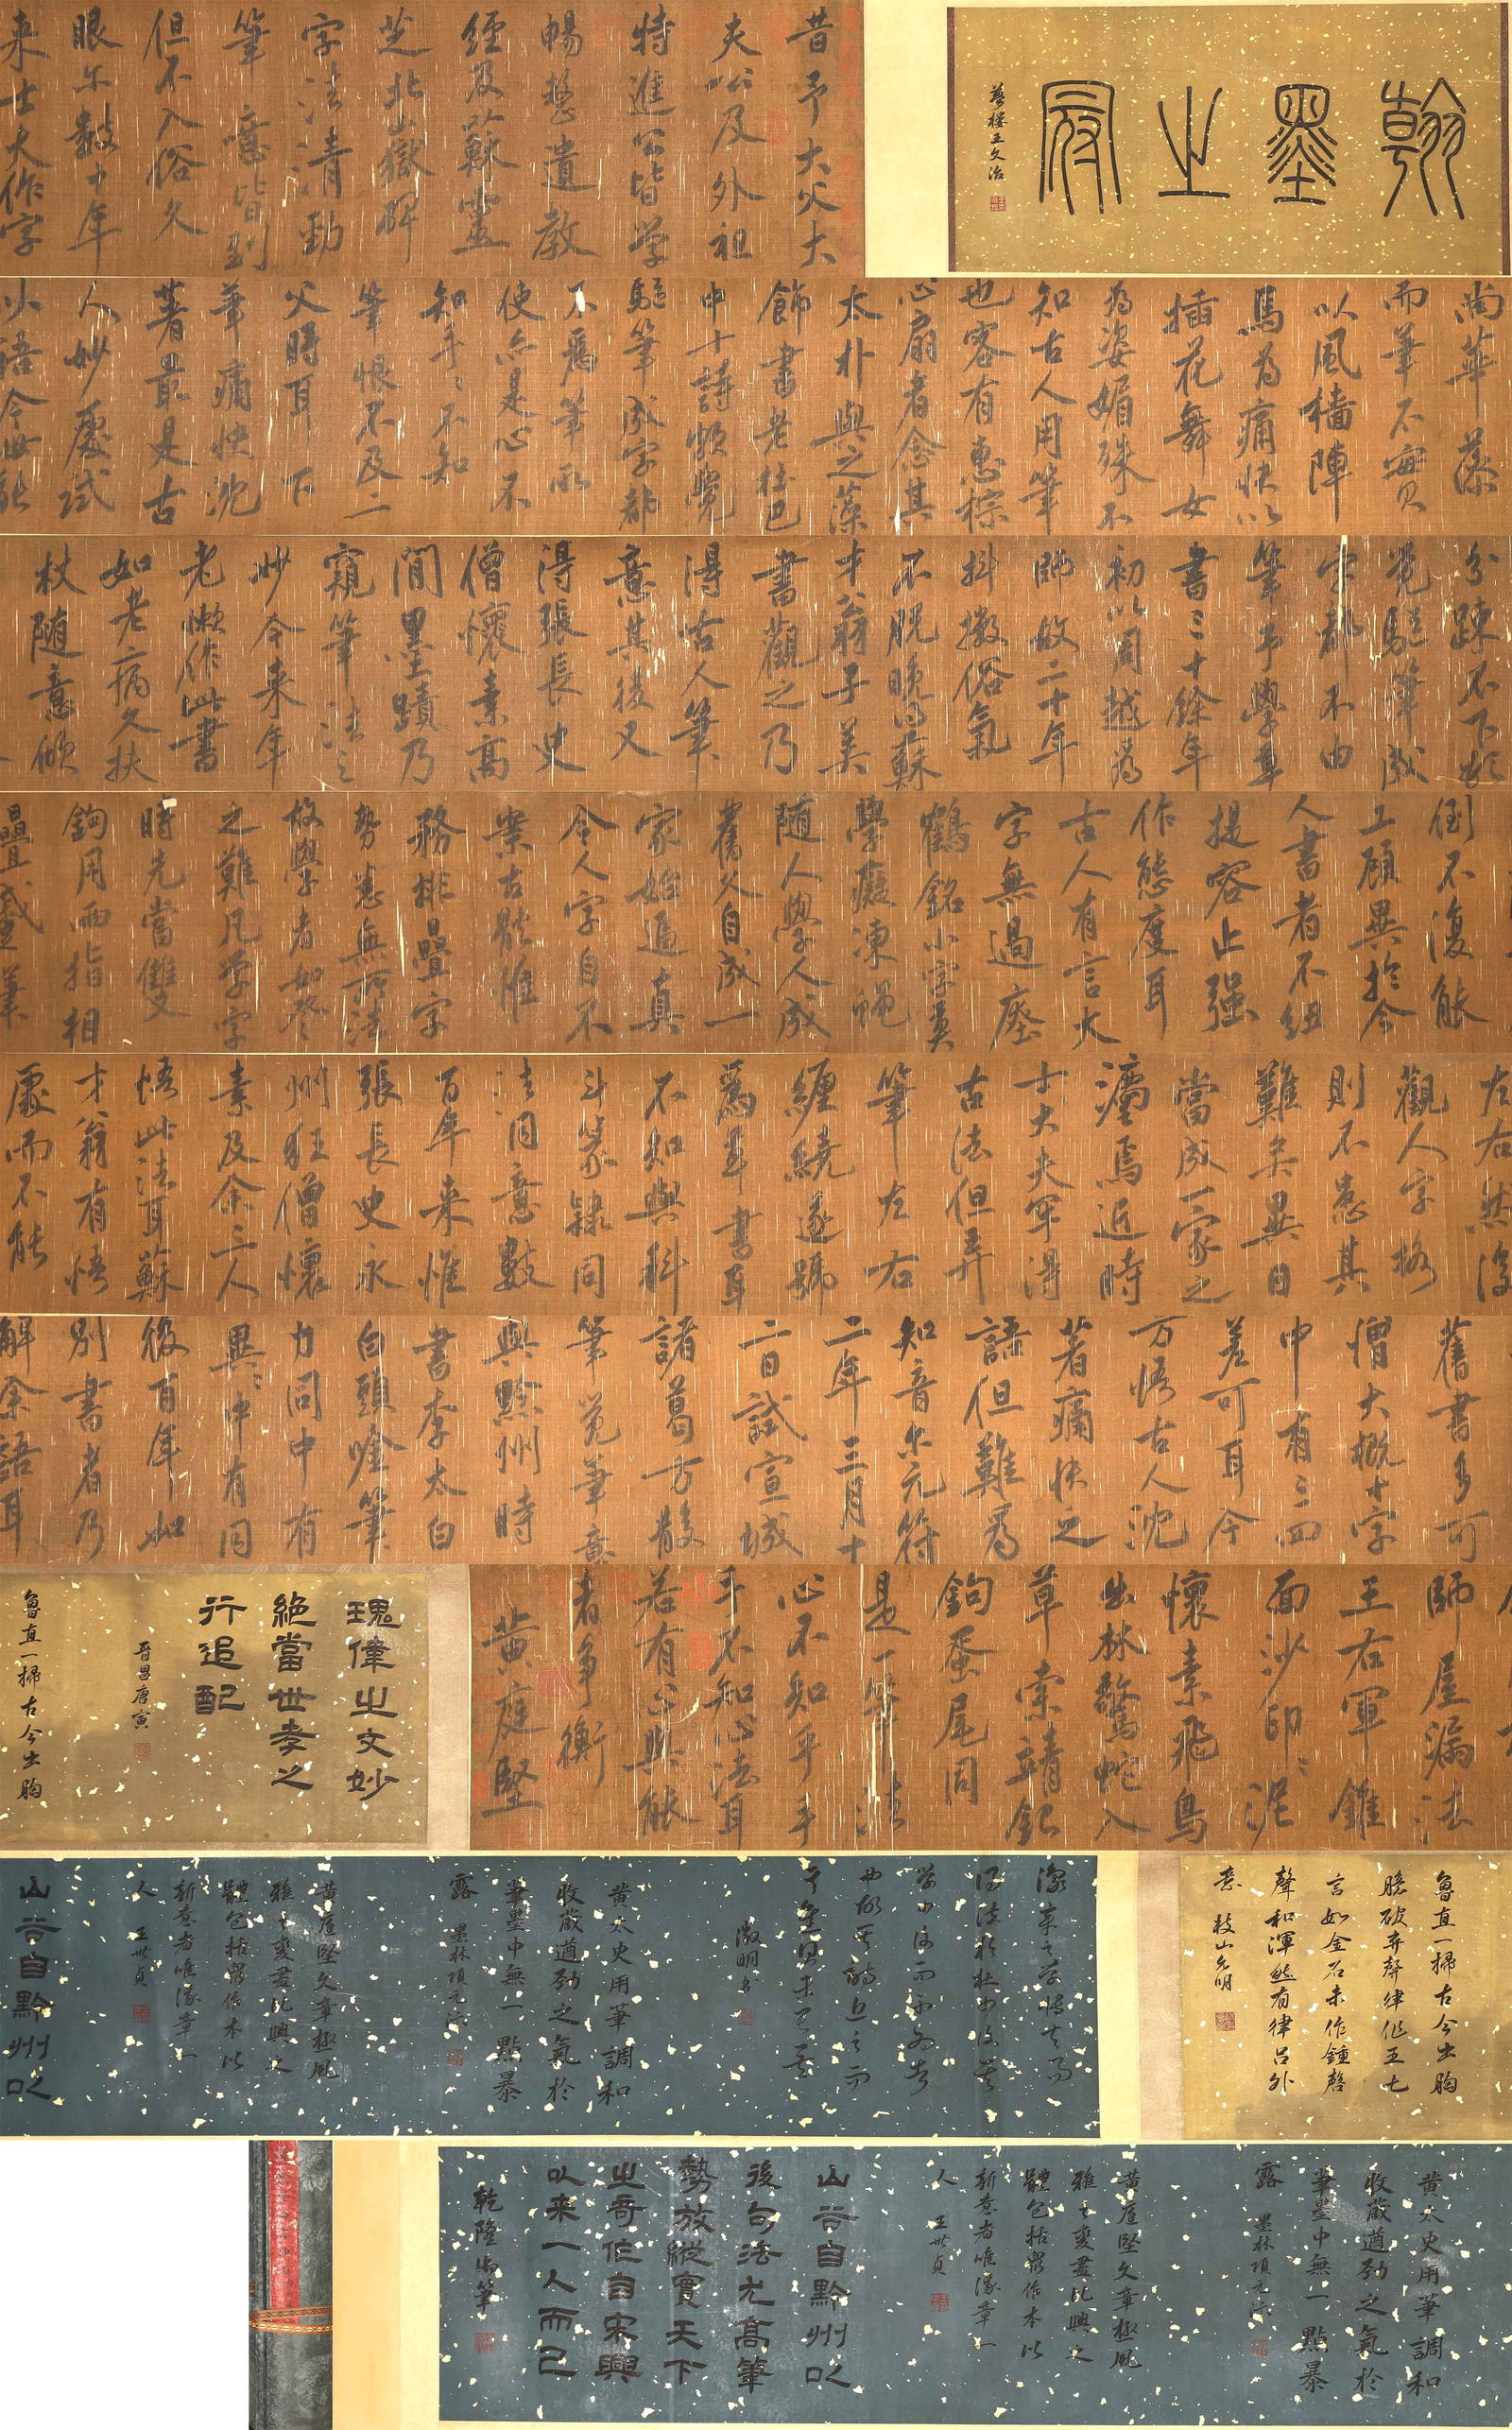 翰墨之
夢樓王文治
昔予大父大
夫公及外祖
特進公皆學
暢整遺教
經及蘇靈
芝北嶽碑
字法清勁
筆意皆到
但不入俗人
眼尔數十年
来士大夫作字
尚華藻
而筆不實
以風檣陣
馬為痛快以
插花舞女
為姿媚殊不
知古人用筆
也客有惠棕
心扇者念其
太朴與之藻
飾書老杜巴
中十詩頗覺
驅筆成字都
不為筆所
使亦是心不
知手ミ不知
筆恨不及二
父時耳下
筆痛快沈
著最是古
人妙處試
以語今世能
分疎不下於
覺驅筆成
字都不由
筆予學草
書三十餘年
初以周越為
師故二十年
抖擻俗氣
不脫晚得蘇
才翁子美
書觀之乃
得古人筆
意其後又
得張長史
僧懷素高
閒墨蹟乃
窺筆法之
妙今来年
老懶作此書
如老病人扶
杖随意傾
倒不復能
工顧異於今
人書者不紐
提容止强
作態度耳
古人有言大
字無過瘞
鶴銘小字莫
學癡凍蠅
随人學人成
舊人自成一
家始逼真
今人字自不
案古體惟
務排疊字
勢悉無所法
故學者如登
之難凡學字
時先當雙
鉤用兩指相
疊蹙筆
左右然後
觀人字格
則不患其
難矣異日
當成一家之
法焉近時
士大夫罕得
古法但弄
筆左右
纏繞遂號
為草書耳
不知與科
斗篆隸同
法同意數
百年来惟
張長史永
州狂僧懷
素及余三人
悟此法耳蘇
才翁有悟
處而不能
舊書多可
憎大概十字
中有三四
差可耳今
方悟古人沈
著痛快之
語但難為
知音尔元符
二年三月十
二日試宣城
諸葛方散
筆覺筆意
與黔州時
書李太白
白頭唫筆
力同中有
異ミ中有同
後百年如
別書者乃
解余語耳
師屋漏法
王右軍錐
面沙印ミ泥
懷素飛鳥
出林驚蛇入
草索靖銀
鉤蠆尾同
是一筆法
心不知乎手
手不知心法耳
若有心與能
者爭衡
黃庭堅
瑰偉之文妙
絕當世孝之
行追配
晉昌唐寅
魯直一掃古今出胸
魯直一掃古今出胸
臆破弃聲律作五七
言如金石未作鍾磬
聲和渾然有律呂外
意
枝山允明
徵明書
黃太史用筆調和
收藏遒勁之氣於
筆墨中無一點暴
露
墨林項元汴
黃庭堅文章極風
雅之變盡比興之
體包括眾作本以
新意者唯豫章一
人
王世貞
山谷自黔州以
黃太史用筆調和
收藏遒勁之氣於
筆墨中無一點暴
露
墨林項元汴
黃庭堅文章極風
雅之變盡比興之
體包括眾作本以
新意者唯豫章一
人
王世貞
山谷自黔州以
後句法尤高筆
勢放縱實天下
之奇作自宋興
以来一人而已
乾隆御筆